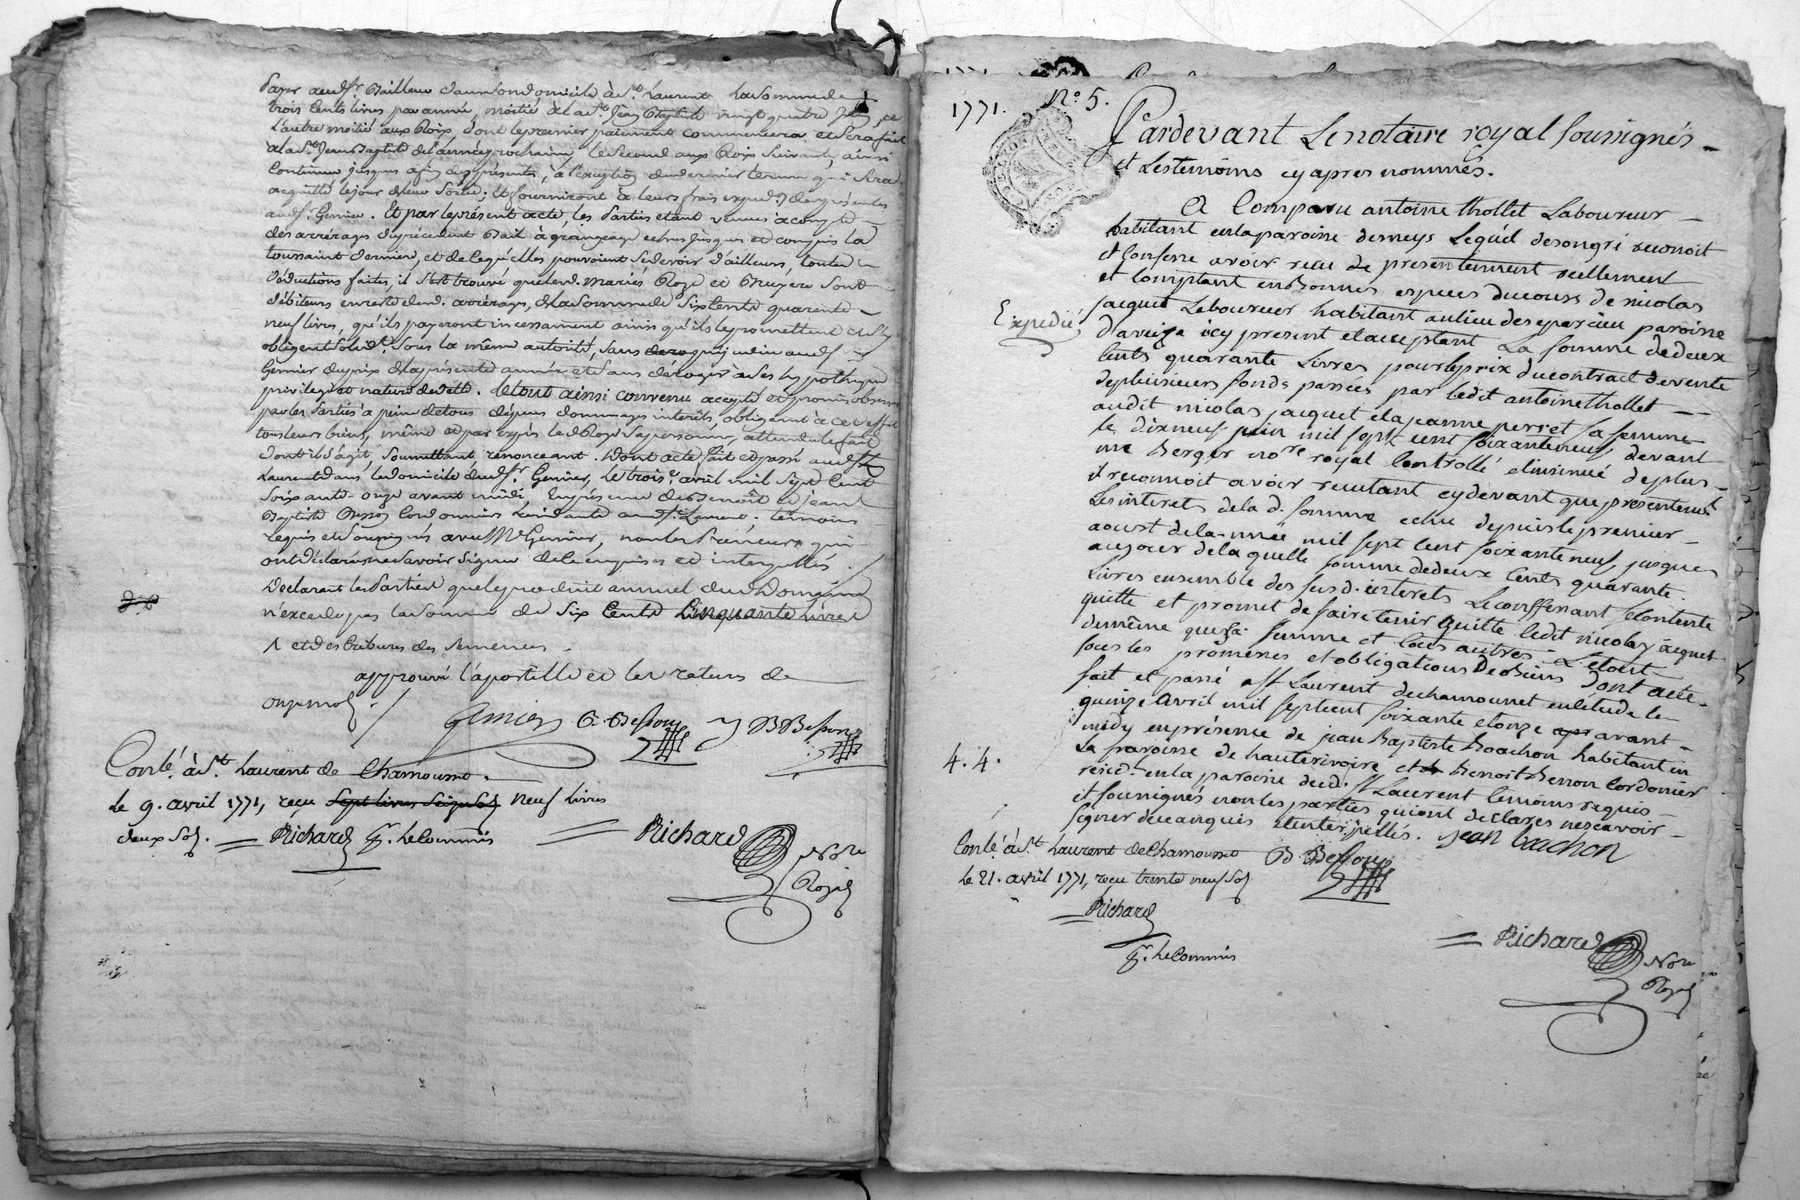 payer audsr. Bailleur dans son domicile à st. Laurent la somme de
trois cents livres par année, moitié à la st. Jean Baptiste vingt quatre juin, et
l'autre moitié aux Rois, dont le premier paiement commencera et sera fait
à la st. Jean Baptiste de l'année prochaine, le second aux Rois suivants, ainsi
continuer jusques à fin des présentes, à l'exception du dernier terme qui sera
acquitté le jour de leur sortie; et fourniront à leurs frais expedon. des présentes
audsr. Genier. Et par le présent acte, les parties etant venues à compte
des arrérages du précédent Bail à grangeage echus jusques et compris la
toussaint dernier, et de lesquelles pouvoient se devoir d'ailleurs, toutes
déductions faites, il s'est trouvé que lesd. mariés Roze et Bruyere sont
débiteurs en reste desd. arrérages, de la somme de six cents quarante
neuf livres, qu'ils payeront incessament ainsi qu'ils le promettent et s'y
obligent solidt. sous la même autorité, sans
Genier du prix de la présente année et sans déroger à ses hypotheques
privilege et nature de dette. de tout ainsi convenu accepté et promis observer
par les Parties à peine de tous dépens dommages interets, obligeant à cet effet
tous leurs biens, même et par exprès led. Roze sa personne, attendu le fait
dont il s'agit, soumettant renonceant. Dont acte fait et passé aud. st.
Laurent dans le domicile dudsr. Genier, le troise. avril mil sept cent
soixante-onze avant midi, en présence de Benoit et jean
Baptiste Besson Cordonniers habitants aud. st. Laurent. témoins
requis et soussignés avec Mr Genier, non les preneurs qui
ont déclaré ne savoir signer de ce enquis et interpellés.
Declarant les Parties que le produit annuel dud. Domaine
n'excede pas la somme de six Cents Cinquante livres
et des cribures des semences.
approuvé l'apostille et les ratures de
onze mots.
Genier B. Besson JB Besson
Conlé. à st. Laurent de Chamousset
Le 9. avril 1771, reçu sept livres seize sols neuf livres
deux sols. Richard fr. le Commis Richard Nore
Royal
1771. No. 5.
Pardevant Le notaire royal soussignés
et Les temoins cy apres nommés.
A Comparu antoine thollet Laboureur
habitant en la paroisse de meys Lequel de son gré reconoit
et Confesse avoir reçu de presentement reellement
et Comptant en bonnes especes du cours de nicolas
Expedié
jacquet Laboureur habitant au lieu des eparcieu paroisse
d'aveize icy present et acceptant La somme de deux
Cents quarante Livres pour le prix du contract de vente
de plusieurs fonds passées par ledit antoine thollet
audit nicolas jacquet et a jeanne perret sa femme
le dix neuf juin mil sept cent soixante neuf, devant
me Berger nore royal Controllé et insinué de plus
il reconnoit avoir reçu tant cy devant que presentemt.
Les interets de la d. somme echu depuis le premier
aoust de l'année mil sept cent soixante neuf, jusques
aujour de la quelle somme de deux Cents quarante
Livres ensemble des susd. interets Le confessant se contente
quitte et promet de faire tenir quitte ledit nicolas jacquet
de même que sa femme et tous autres. Le tout
sous les promesses et obligations De biens Dont acte
fait et passé a st Laurent de chamousset en l'etude le
quinze avril mil sept cent soixante et onze apr avant
midy en présence de jean Baptiste Boachon habitant en
4. 4.
La paroisse de hauterivoire et Benoit Besson Cordonier
resid. en la paroisse dud. st Laurent temoins requis
et soussignés non les parties qui ont declarés ne scavoir
signer de ce enquis et interpellés. Jean bachon
Conlé. à st. Laurent de Chamousset B. Besson
Le 21. avril 1771, reçu trente neuf sols
Richard
fr. le Commis
Richard Nore
Royal